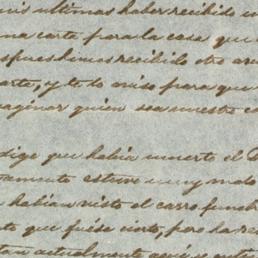 mis ultimas haber recibido
una carta para la casa que
spues hemos recibido otro
arte, y te lo aviso para que
maginar quien sea nuestro
dige que habia muerto el
tamente estuvo muy malo
habian visto el carro funebr
to que fuése cierto, pero ha re
tan actualmente